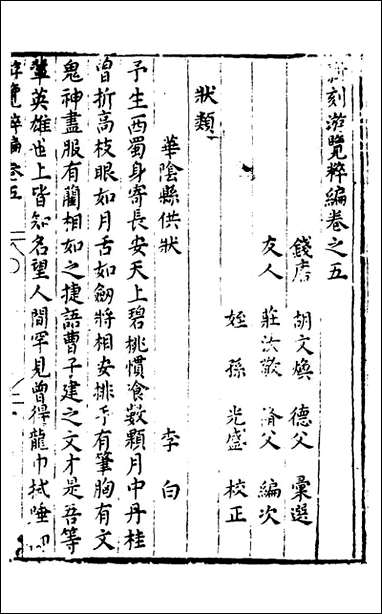 新刻游覽粹編卷之五
錢唐 胡文煥 德父 彙選
友人 莊汝敬 脩父 編次
姪孫 光盛 校正
狀類
華陰縣供狀 李白
予生西蜀身寄長安天上碧桃慣飡數顆月中丹桂
曾折高枝眼如月舌如劒將相安排手有筆胸有文
鬼神盡服有藺相如之捷語曹子建之文才是吾等
輩英雄也上皆知名望人間罕見曾得龍巾拭唾
游覽粹編 卷五